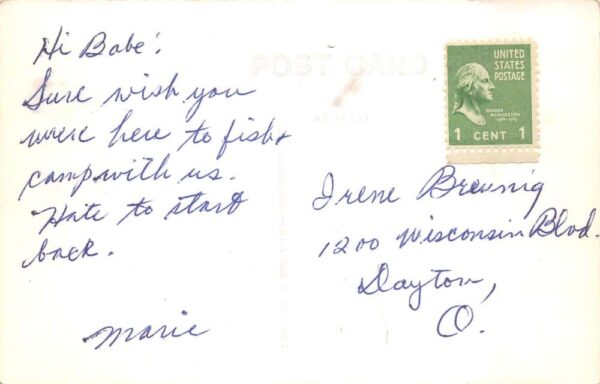 Hi Babe!
Sure wish you
were here to fish &
camp with us.
Hate to start
back.
Marie
POST CARD
ADDRESS
UNITED
STATES
POSTAGE
GEORGE
WASHINGTON
1 CENT 1
Irene Breunig
1200 Wisconsin Blvd.
Dayton,
O.